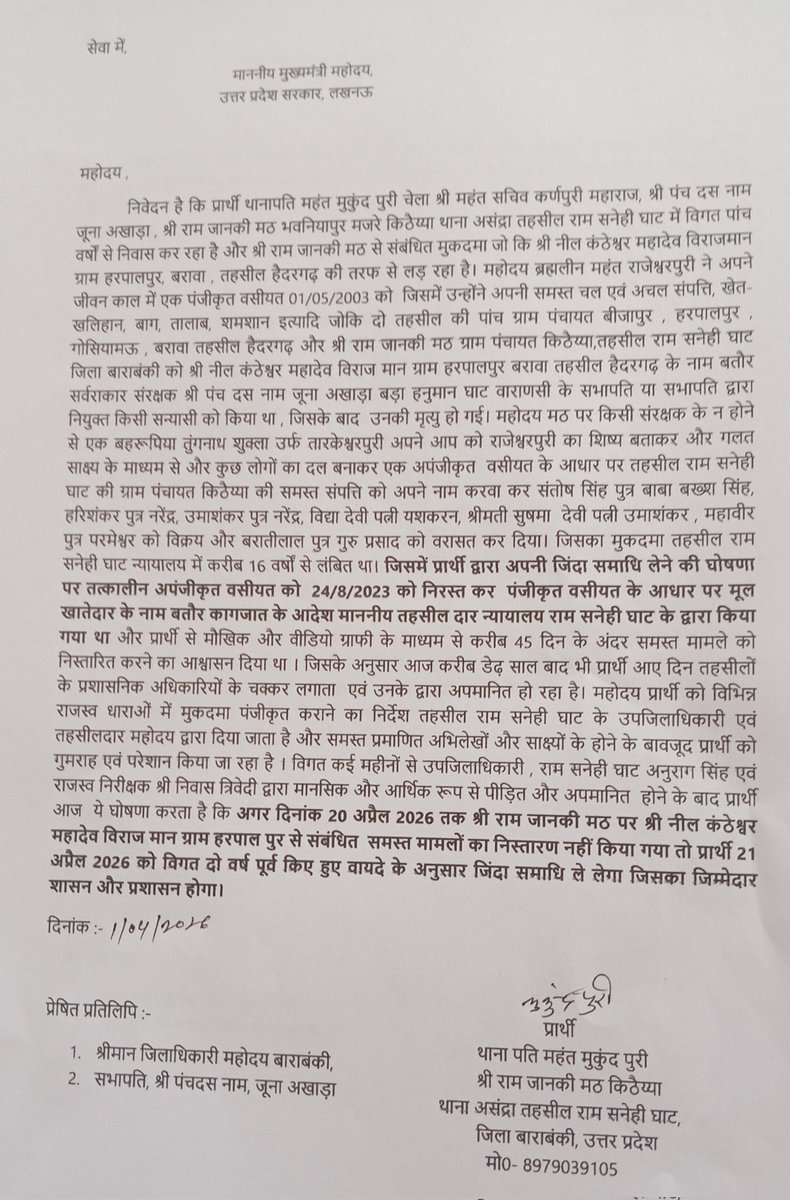 सेवा में,
माननीय मुख्यमंत्री महोदय,
उत्तर प्रदेश सरकार, लखनऊ
महोदय ,
निवेदन है कि प्रार्थी थानापति महंत मुकुंद पुरी चेला श्री महंत सचिव कर्णपुरी महाराज, श्री पंच दस नाम
जूना अखाड़ा , श्री राम जानकी मठ भवनियापुर मजरे किठैय्या थाना असंद्रा तहसील राम सनेही घाट में विगत पांच
वर्षों से निवास कर रहा है और श्री राम जानकी मठ से संबंधित मुकदमा जो कि श्री नील कंठेश्वर महादेव विराजमान
ग्राम हरपालपुर, बरावा , तहसील हैदरगढ़ की तरफ से लड़ रहा है। महोदय ब्रह्मलीन महंत राजेश्वरपुरी ने अपने
जीवन काल में एक पंजीकृत वसीयत 01/05/2003 को जिसमें उन्होंने अपनी समस्त चल एवं अचल संपत्ति, खेत-
खलिहान, बाग, तालाब, शमशान इत्यादि जोकि दो तहसील की पांच ग्राम पंचायत बीजापुर , हरपालपुर ,
गोसियामऊ , बरावा तहसील हैदरगढ़ और श्री राम जानकी मठ ग्राम पंचायत किठैय्या,तहसील राम सनेही घाट
जिला बाराबंकी को श्री नील कंठेश्वर महादेव विराज मान ग्राम हरपालपुर बरावा तहसील हैदरगढ़ के नाम बतौर
सर्वराकार संरक्षक श्री पंच दस नाम जूना अखाड़ा बड़ा हनुमान घाट वाराणसी के सभापति या सभापति द्वारा
नियुक्त किसी सन्यासी को किया था , जिसके बाद उनकी मृत्यु हो गई। महोदय मठ पर किसी संरक्षक के न होने
से एक बहरूपिया तुंगनाथ शुक्ला उर्फ तारकेश्वरपुरी अपने आप को राजेश्वरपुरी का शिष्य बताकर और गलत
साक्ष्य के माध्यम से और कुछ लोगों का दल बनाकर एक अपंजीकृत वसीयत के आधार पर तहसील राम सनेही
घाट की ग्राम पंचायत किठैय्या की समस्त संपत्ति को अपने नाम करवा कर संतोष सिंह पुत्र बाबा बख्श सिंह,
हरिशंकर पुत्र नरेंद्र, उमाशंकर पुत्र नरेंद्र, विद्या देवी पत्नी यशकरन, श्रीमती सुषमा देवी पत्नी उमाशंकर , महावीर
पुत्र परमेश्वर को विक्रय और बरातीलाल पुत्र गुरु प्रसाद को वरासत कर दिया। जिसका मुकदमा तहसील राम
सनेही घाट न्यायालय में करीब 16 वर्षों से लंबित था। जिसमें प्रार्थी द्वारा अपनी जिंदा समाधि लेने की घोषणा
पर तत्कालीन अपंजीकृत वसीयत को 24/8/2023 को निरस्त कर पंजीकृत वसीयत के आधार पर मूल
खातेदार के नाम बतौर कागजात के आदेश माननीय तहसील दार न्यायालय राम सनेही घाट के द्वारा किया
गया था और प्रार्थी से मौखिक और वीडियो ग्राफी के माध्यम से करीब 45 दिन के अंदर समस्त मामले को
निस्तारित करने का आश्वासन दिया था । जिसके अनुसार आज करीब डेढ़ साल बाद भी प्रार्थी आए दिन तहसीलों
के प्रशासनिक अधिकारियों के चक्कर लगाता एवं उनके द्वारा अपमानित हो रहा है। महोदय प्रार्थी को विभिन्न
राजस्व धाराओं में मुकदमा पंजीकृत कराने का निर्देश तहसील राम सनेही घाट के उपजिलाधिकारी एवं
तहसीलदार महोदय द्वारा दिया जाता है और समस्त प्रमाणित अभिलेखों और साक्ष्यों के होने के बावजूद प्रार्थी को
गुमराह एवं परेशान किया जा रहा है । विगत कई महीनों से उपजिलाधिकारी , राम सनेही घाट अनुराग सिंह एवं
राजस्व निरीक्षक श्री निवास त्रिवेदी द्वारा मानसिक और आर्थिक रूप से पीड़ित और अपमानित होने के बाद प्रार्थी
आज ये घोषणा करता है कि अगर दिनांक 20 अप्रैल 2026 तक श्री राम जानकी मठ पर श्री नील कंठेश्वर
महादेव विराज मान ग्राम हरपाल पुर से संबंधित समस्त मामलों का निस्तारण नहीं किया गया तो प्रार्थी 21
अप्रैल 2026 को विगत दो वर्ष पूर्व किए हुए वायदे के अनुसार जिंदा समाधि ले लेगा जिसका जिम्मेदार
शासन और प्रशासन होगा।
दिनांक :- 1/04/2026
मुकुंद पुरी
प्रेषित प्रतिलिपि :-
प्रार्थी
1. श्रीमान जिलाधिकारी महोदय बाराबंकी,
थाना पति महंत मुकुंद पुरी
2. सभापति, श्री पंचदस नाम, जूना अखाड़ा
श्री राम जानकी मठ किठैय्या
थाना असंद्रा तहसील राम सनेही घाट,
जिला बाराबंकी, उत्तर प्रदेश
मो0- 8979039105